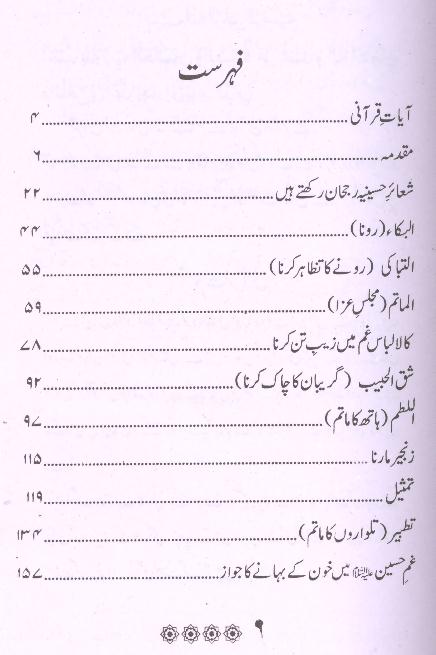 فہرست
آیاتِ قرآنی ........ ۴
مقدمہ ........ ۶
شعائرِ حسینیہ رجحان رکھتے ہیں ........ ۲۲
البکاء (رونا) ........ ۴۴
التباکی (رونے کا تظاہر کرنا) ........ ۵۵
الماتم (مجلسِ عزا) ........ ۵۹
کالا لباس غم میں زیبِ تن کرنا ........ ۷۸
شق الجیب (گریبان کا چاک کرنا) ........ ۹۲
اللطم (ہاتھ کا ماتم) ........ ۹۷
زنجیر مارنا ........ ۱۱۵
تمثیل ........ ۱۱۹
تطبیر (تلواروں کا ماتم) ........ ۱۳۴
غمِ حسین علیہ السلام میں خون کے بہانے کا جواز ........ ۱۵۷
۹